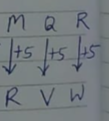 M Q R
↓+5 ↓+5 ↓+5
R V W